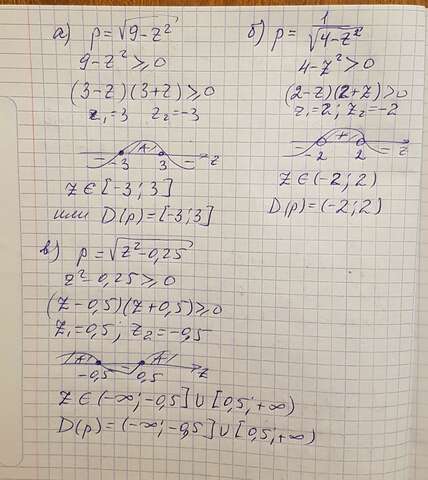 а) p = √(9-z²)
9-z² ≥ 0
(3-z)(3+z) ≥ 0
z₁=3 z₂=-3
- + -
-3 3 z
z ∈ [-3; 3]
или D(p) = [-3; 3]
б) p = 1/√(4-z²)
4-z² > 0
(2-z)(2+z) > 0
z₁=2; z₂=-2
- + -
-2 2 z
z ∈ (-2; 2)
D(p) = (-2; 2)
в) p = √(z²-0,25)
z²-0,25 ≥ 0
(z-0,5)(z+0,5) ≥ 0
z₁=0,5; z₂=-0,5
+ - +
-0,5 0,5 z
z ∈ (-∞; -0,5] ∪ [0,5; +∞)
D(p) = (-∞; -0,5] ∪ [0,5; +∞)